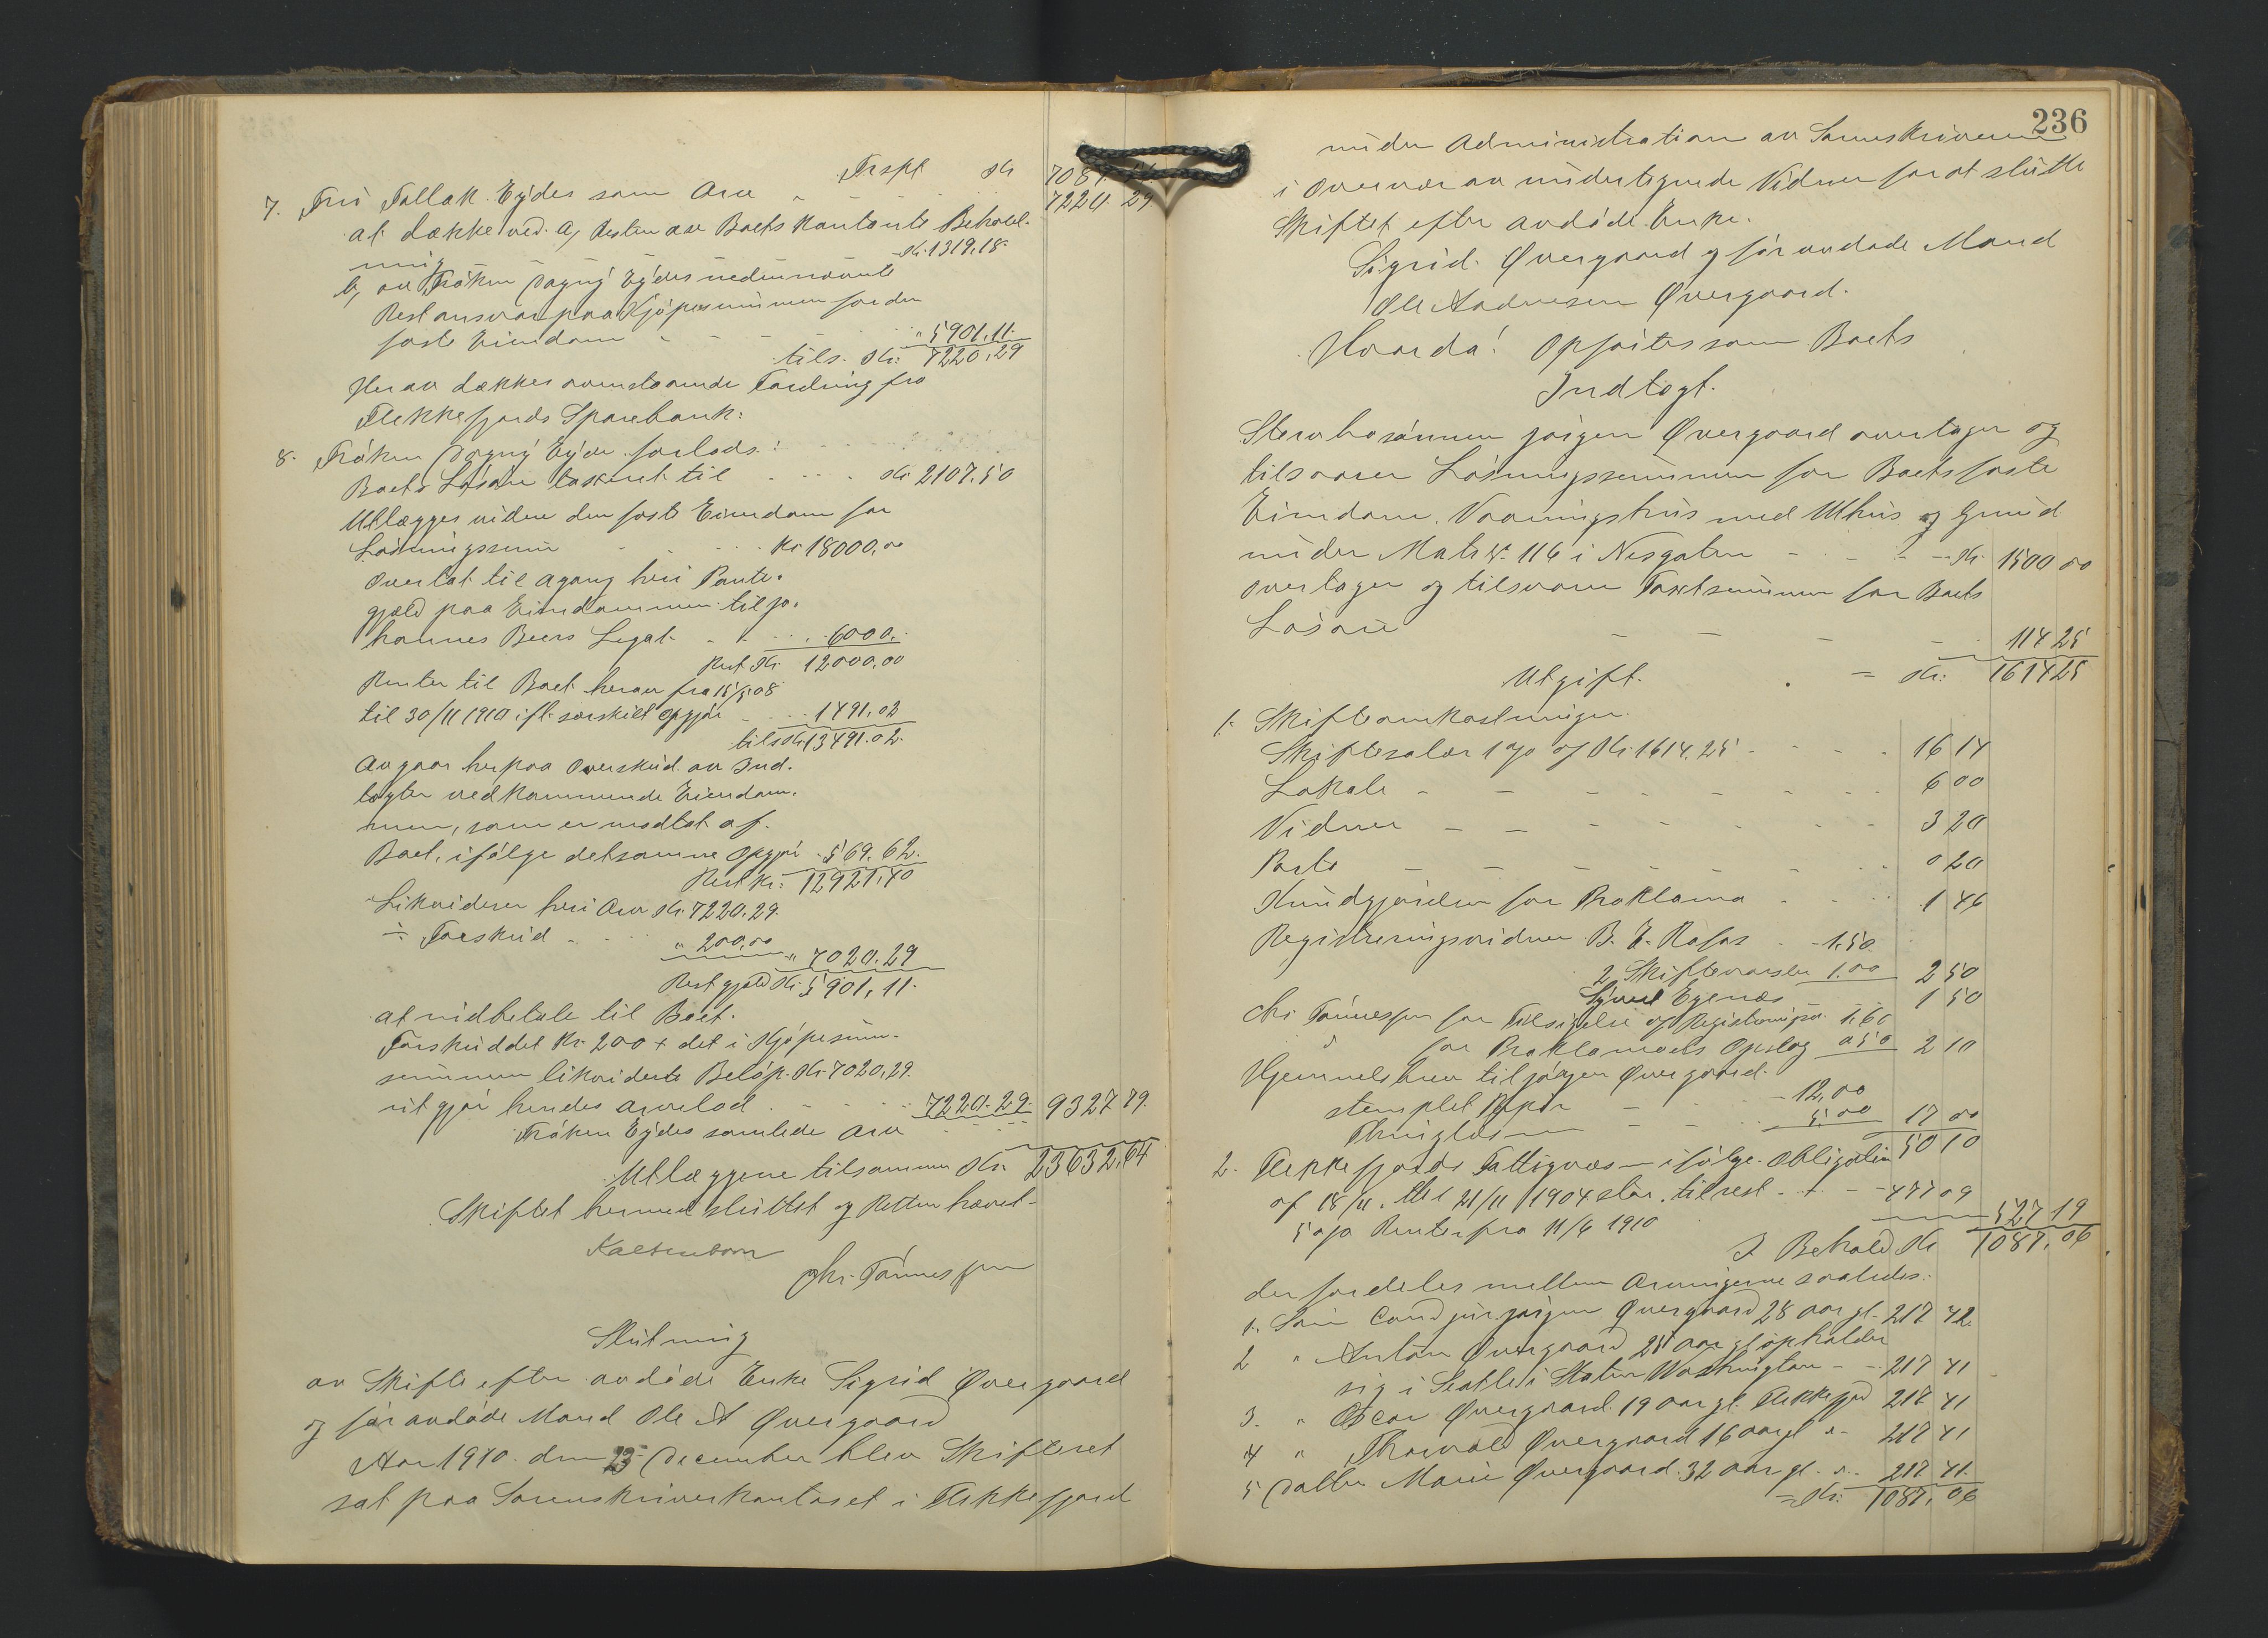 Trspt Kr 7084
7. Fru Tollak Eydes sam Arv - - - 7220.29
at dække ved a, Resten av Boets Kontante Behold-
ning Kr. 1319.18
b, av Frøken Dagny Eydes nedennævnte
Restansvar paa Kjøpesummen for den
faste Eiendom - - - " 5901.11
tils. Kr. 7220.29
Herav dækkes ovenstaaende Fordring fra
Flekkefjords Sparebank:
8. Frøken Dagny Eyde forlods:
Boets Løsøre taxeret til - - - Kr 2107.50
Utlægges videre den faste Eiendom for
Løsningssum - - - Kr 18000.00
overlat til agang heri Pante-
gjæld paa Eiendommen til Jo-
hannes Beers Legat - - - 6000.-
Rest Kr. 12000.00
Renter til Boet herav fra 15/5 08
til 30/11 1910 ifl. særskilt Opgjør - - 1491.02
tils Kr 13491.02.
Avgaar herpaa Overskud av Ind-
tægter vedkommende Eiendom-
men, som er modtat af
Boet, ifølge detsamme Opgjør - 569.62.
Rest Kr: 12921.40
Likviderer heri Arv Kr. 7220.29.
÷ Forskud - - " 200.00
" 7020.29
Restgjæld Kr. 5901.11.
at indbetale til Boet.
Forskuddet Kr. 200 + det i Kjøpesum-
summen likviderte Beløp Kr. 7020.29.
utgjør hendes Arvelod - - - 7220.29. 9327 79.
Frøken Eydes samlede Arv - - -
Utlæggene tilsammen Kr. 23632.64
Skiftet hermed sluttet og Retten hævet.
Kaltenborn
Chr. Tønnessen
Slutning
av Skifte efter avdøde Enke Sigrid Øvergaard
og før avdøde Mand Ole A Øvergaard
Aar 1910 den 23 December blev Skifteret
sat paa Sorenskriverkontoret i Flekkefjord
236
under Administration av Sorenskriveren
i Overvær av undertegnede Vidner for at slutte
Skiftet efter avdøde Enke
Sigrid Øvergaard og før avdøde Mand
Ole Andreasen Øvergaard.
Hvorda! Opførtes som Boets
Indtægt.
Stervbosønnen Jørgen Øvergaard overtager og
tilsvarer Løsningssummen for Boets faste
Eiendom. Vaaningshus med Uthus og Grund
under Matr. Nr. 116 i Nesgaten - - - Kr. 1500 00
overtager og tilsvarer Taxtsummen for Boets
Løsøre - - - - 114 25
= Kr: 1614 25
Utgift.
1. Skifteomkostninger.
Skiftesalær 1 % af Kr. 1614.25 - - - 16 14
Lokale - - - - - - 6 00
Vidner - - - - - - 3 20
Porto - - - - - - 0 20
Kundgjørelse for Proklama - - - 1 46
Registreringsvidner B. E. Rafos - - 1.50
2 Skiftevarsler 1.00 2 50
Sivert Egenæs 1 50
Chr. Tønnessen for Tilsigelse af Registreringsv. 1.60
" for Proklamaets Opslag 0 50 2 10
Hjemmelsbrev til Jørgen Øvergaard.
stemplet Papir - - - 12.00
Thinglæsn - - - 5.00 17 00
50 10
2. Flekkefjords Fattigvæsen ifølge Obligation
af 18/11, thl 21/11 1904 stor, tilrest - + - - 477 09
5 % Renter fra 11/6 1910 527 19
I Behold Kr 1087.06
der fordeles mellem Arvingerne saaledes:
1. Søn Cand jur Jørgen Øvergaard 28 aar gl. 217 42
2 " Anton Øvergaard 25 aar gl opholder
sig i Seattle i Staten Washington - - 217 41
3. " Oscar Øvergaard 19 aar gl. Flekkefjd 217 41
4 " Thorvald Øvergaard 16 aar gl. s- 217 41
5 Datter Marie Øvergaard 32 aar gl. s.. 217 41.
= Kr: 1087.06